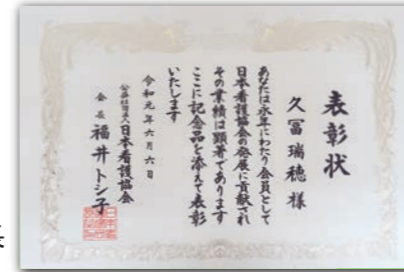 表彰状
久冨瑞穂様
あなたは永年にわたり会員として
日本看護協会の発展に貢献され
その業績は顕著であります
ここに記念品を添えて表彰
いたします
令和元年六月六日
公益社団法人日本看護協会
会長 福井トシ子
長